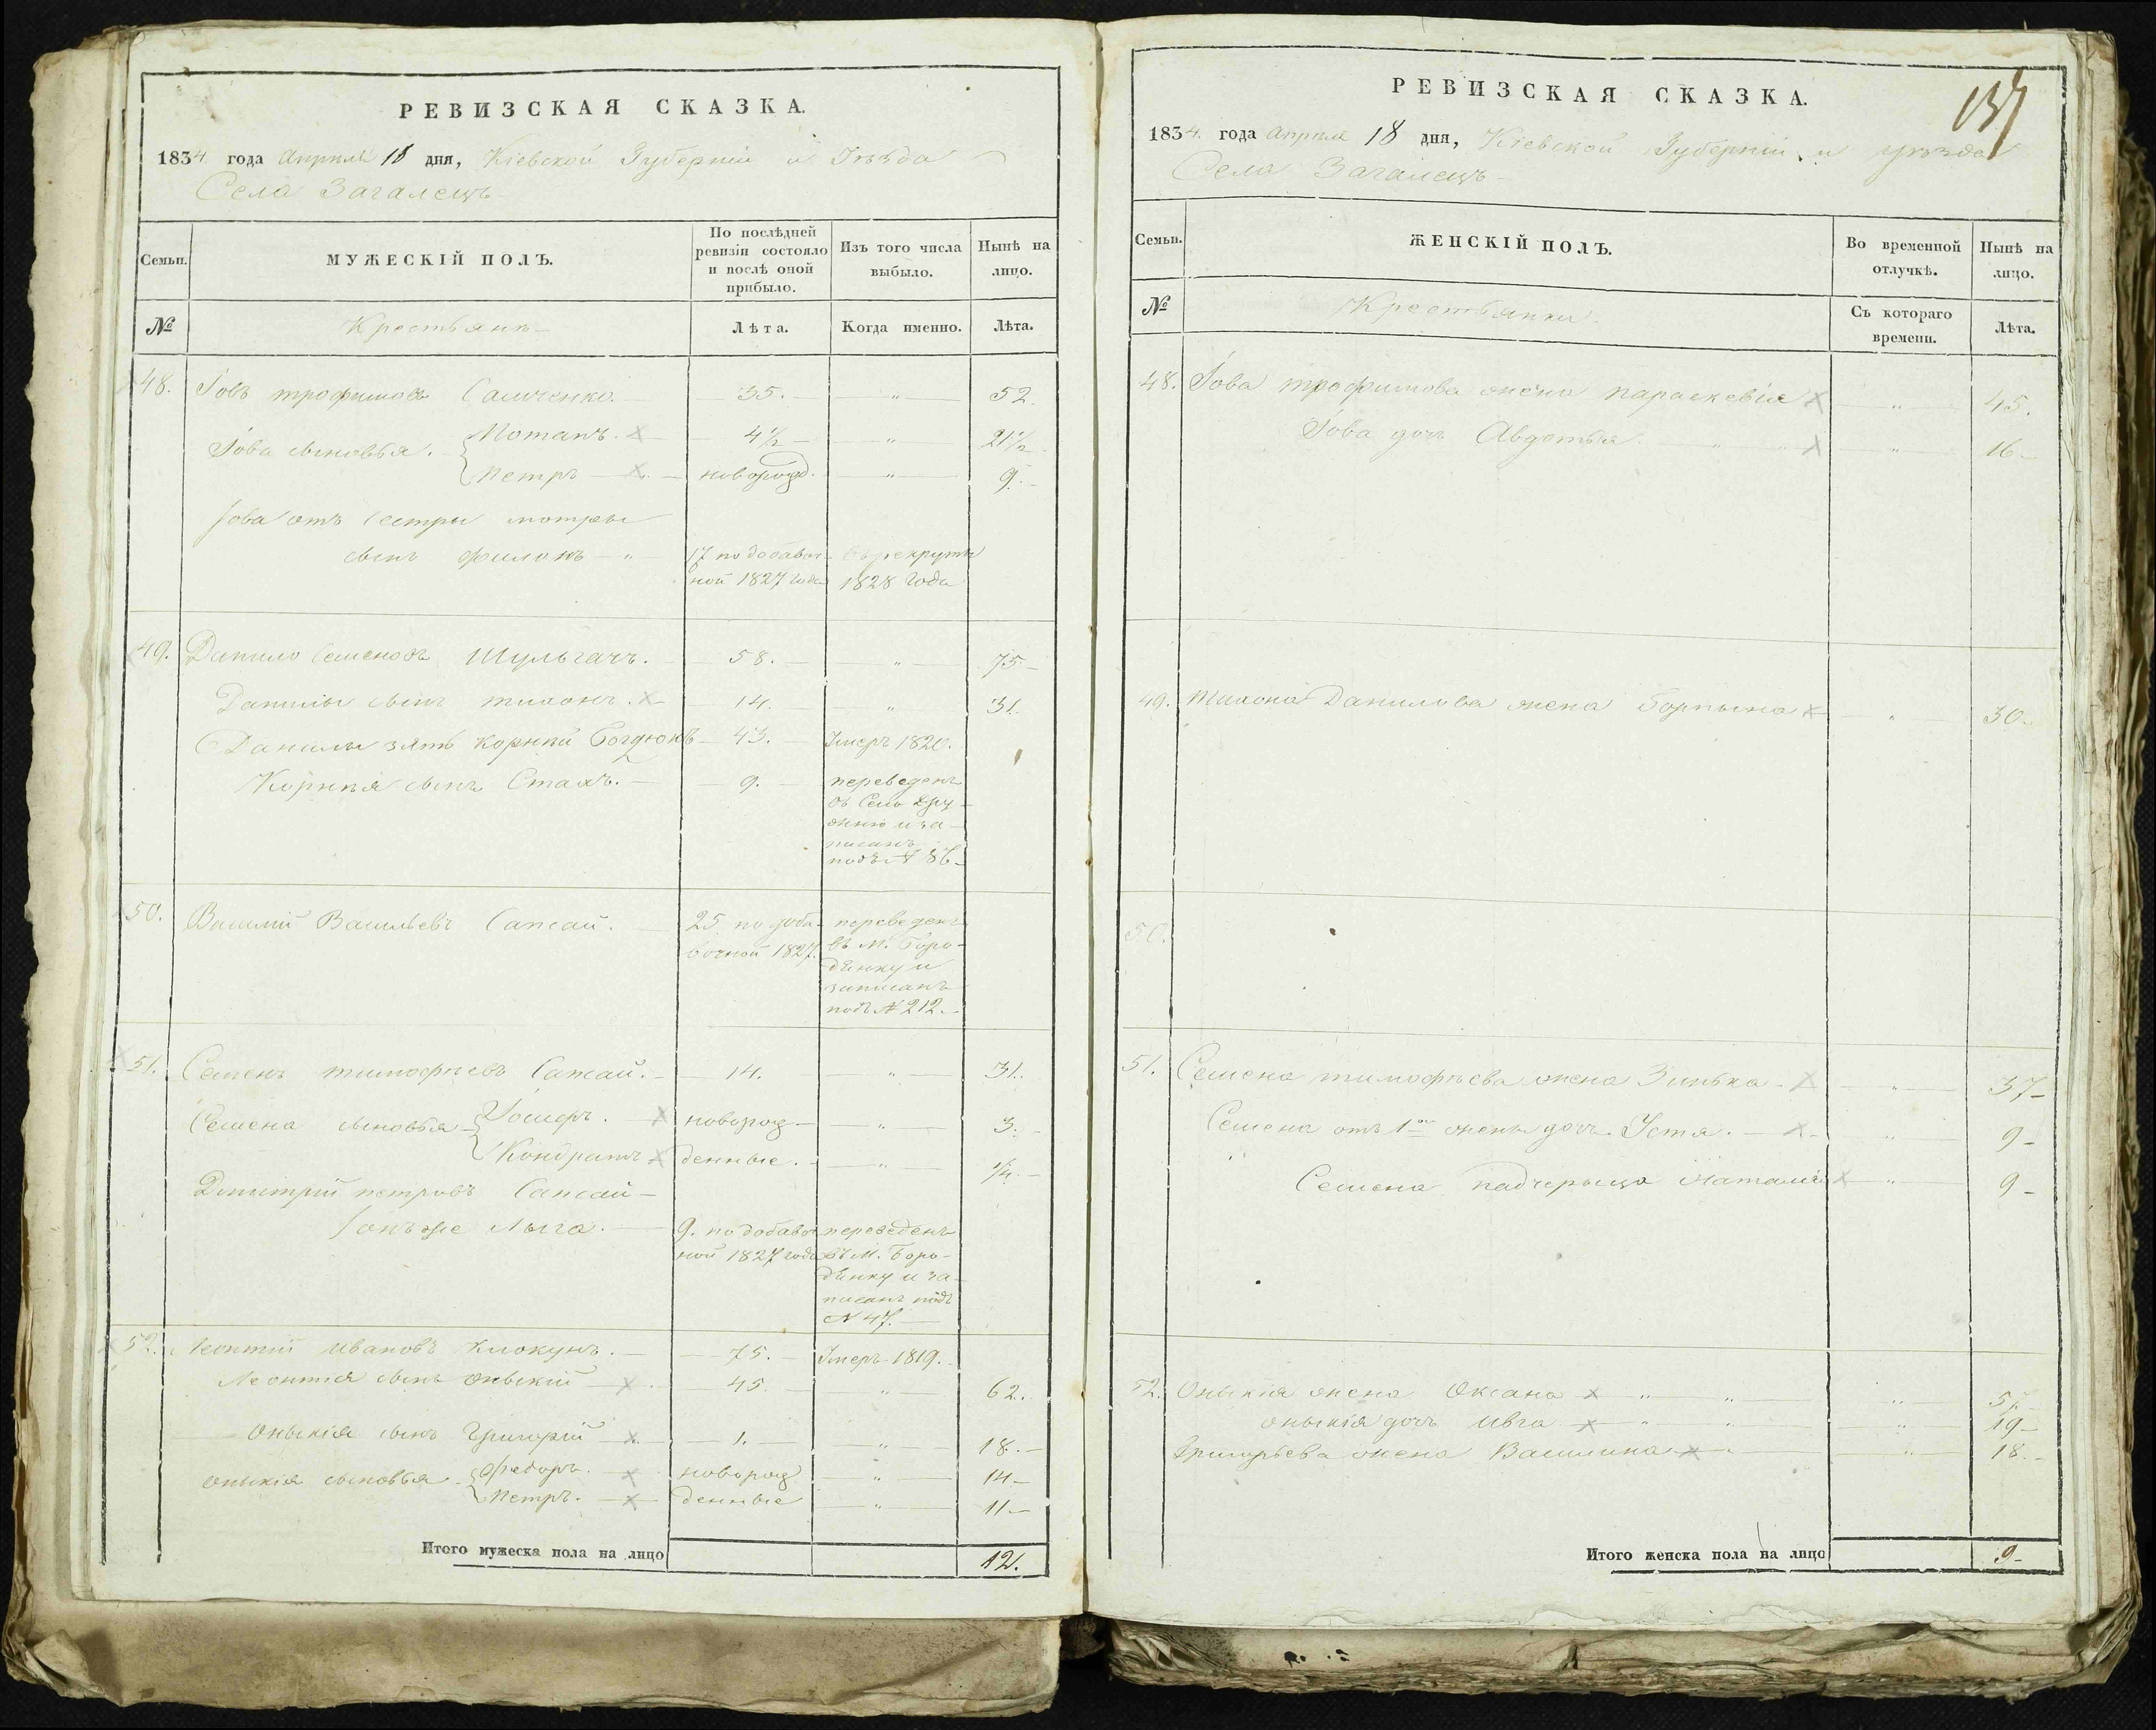 РЕВИЗСКАЯ СКАЗКА.
1834 года Апреля 18 дня, Кіевской Губерніи и Уѣзда
Села Загалецъ
Семьи. МУЖЕСКІЙ ПОЛЪ. По послѣдней ревизіи состояло и послѣ оной прибыло. Изъ того числа выбыло. Нынѣ на лицо.
№ Крестьянъ Лѣта. Когда именно. Лѣта.
48. Іовъ трофимовъ Самченко. 35. „ 52.
Іова сыновья. Потапъ. 4½ „ 21½
Петръ новорожд. „ 9.
Іова отъ сестры мотры
сынъ филонъ „ 17 по добавоч- въ рекруты
ной 1827 года 1828 года
49. Данило Семеновъ Шульгачъ. 58. „ 75
Данилы сынъ тихонъ. 14. „ 31.
Данилы зять корнѣй 43. Умеръ 1820.
Корнѣя сынъ Стахъ. 9. переведенъ
въ Село
и за-
писанъ
подъ №
50. Василий Васильевъ Сапсай. 25 по доба- переведенъ
вочной 1827. въ М. Боро-
дянку и
записанъ
подъ № 212.
51. Семенъ тимофѣевъ Сапсай. 14. „ 31.
Семена сыновья Іосифъ. новорож „ 3.
Кондратъ денные. „ ¼.
Дмитрій петровъ Сапсай
онъ же Лыга. 9. по добавоч переведенъ
ной 1827 года въ М. Боро-
дянку и за-
писанъ подъ
N 47.
52. Леонтій Ивановъ Клокунъ. 75. Умеръ 1819.
Леонтія сынъ Оныскій 45. „ 62.
Оныскія сынъ Григорій 1. „ 18.
Оныскія сыновья Федоръ. новорож „ 14
Петръ. денные „ 11
Итого мужеска пола на лицо 12.
137
РЕВИЗСКАЯ СКАЗКА.
1834. года Апреля 18 дня, Кіевской Губерніи и уѣзда
Села Загалецъ
Семьи. ЖЕНСКІЙ ПОЛЪ. Во временной отлучкѣ. Нынѣ на лицо.
№ Крестьянки. Съ котораго времени. Лѣта.
48. Іова трофимова жена параскевія „ 45.
Іова дочь Авдотья. „ 16
49. Тихона Данилова жена Горпына „ 30.
50.
51. Семена тимофѣева жена Зинька „ 37
Семена отъ 1ой жены дочь Устя. „ 9
Семена падчерыца Наталія „ 9
52. Оныскія жена Оксана „ „ „ 57.
Оныскія дочь Ивга „ „ 19
Григорьева жена Василина „ „ 18.
Итого женска пола на лицо 9